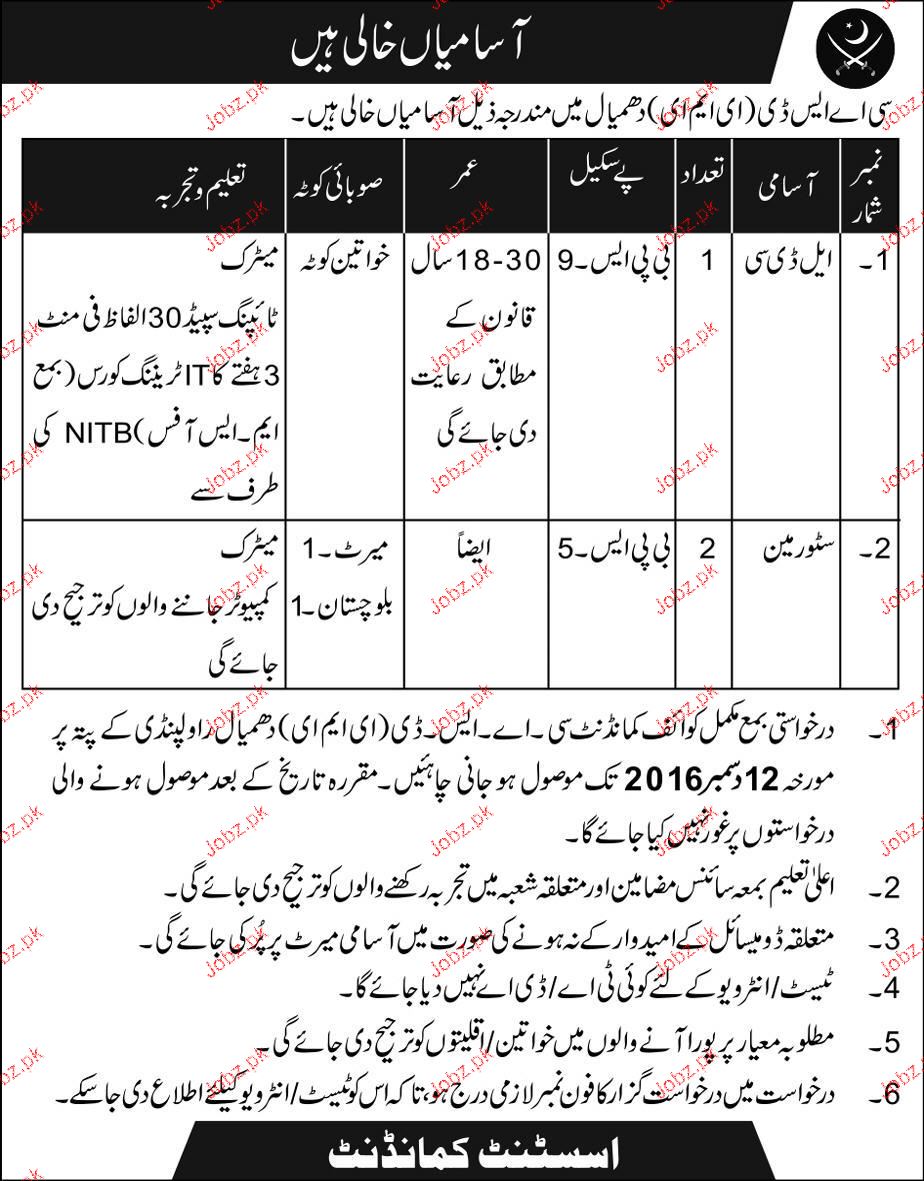 آسامیاں خالی ہیں
سی اے ایس ڈی (ای ایم ای) دھمیال میں مندرجہ ذیل آسامیاں خالی ہیں۔
نمبر شمار
آسامی
تعداد
پے سکیل
عمر
صوبائی کوٹہ
تعلیم و تجربہ
1۔
ایل ڈی سی
1
بی پی ایس۔9
18-30 سال
قانون کے
مطابق رعایت
دی جائے گی
خواتین کوٹہ
میٹرک
ٹائپنگ سپیڈ 30 الفاظ فی منٹ
3 ہفتے کا IT ٹریننگ کورس (بمع
ایم۔ایس آفس) NITB کی
طرف سے
2۔
سٹور مین
2
بی پی ایس۔5
ایضاً
میرٹ۔1
بلوچستان۔1
میٹرک
کمپیوٹر جاننے والوں کو ترجیح دی
جائے گی
1۔ درخواستی بمع مکمل کوائف کمانڈنٹ سی۔اے۔ایس۔ڈی (ای ایم ای) دھمیال راولپنڈی کے پتہ پر
مورخہ 12 دسمبر 2016 تک موصول ہو جانی چاہئیں۔ مقررہ تاریخ کے بعد موصول ہونے والی
درخواستوں پر غور نہیں کیا جائے گا۔
2۔ اعلیٰ تعلیم بمعہ سائنس مضامین اور متعلقہ شعبہ میں تجربہ رکھنے والوں کو ترجیح دی جائے گی۔
3۔ متعلقہ ڈومیسائل کے امیدوار کے نہ ہونے کی صورت میں آسامی میرٹ پر پُر کی جائے گی۔
4۔ ٹیسٹ/انٹرویو کے لئے کوئی ٹی اے/ڈی اے نہیں دیا جائے گا۔
5۔ مطلوبہ معیار پر پورا آنے والوں میں خواتین/اقلیتوں کو ترجیح دی جائے گی۔
6۔ درخواست میں درخواست گزار کا فون نمبر لازمی درج ہو، تاکہ اس کو ٹیسٹ/انٹرویو کیلئے اطلاع دی جا سکے۔
اسسٹنٹ کمانڈنٹ
Jobz.pk